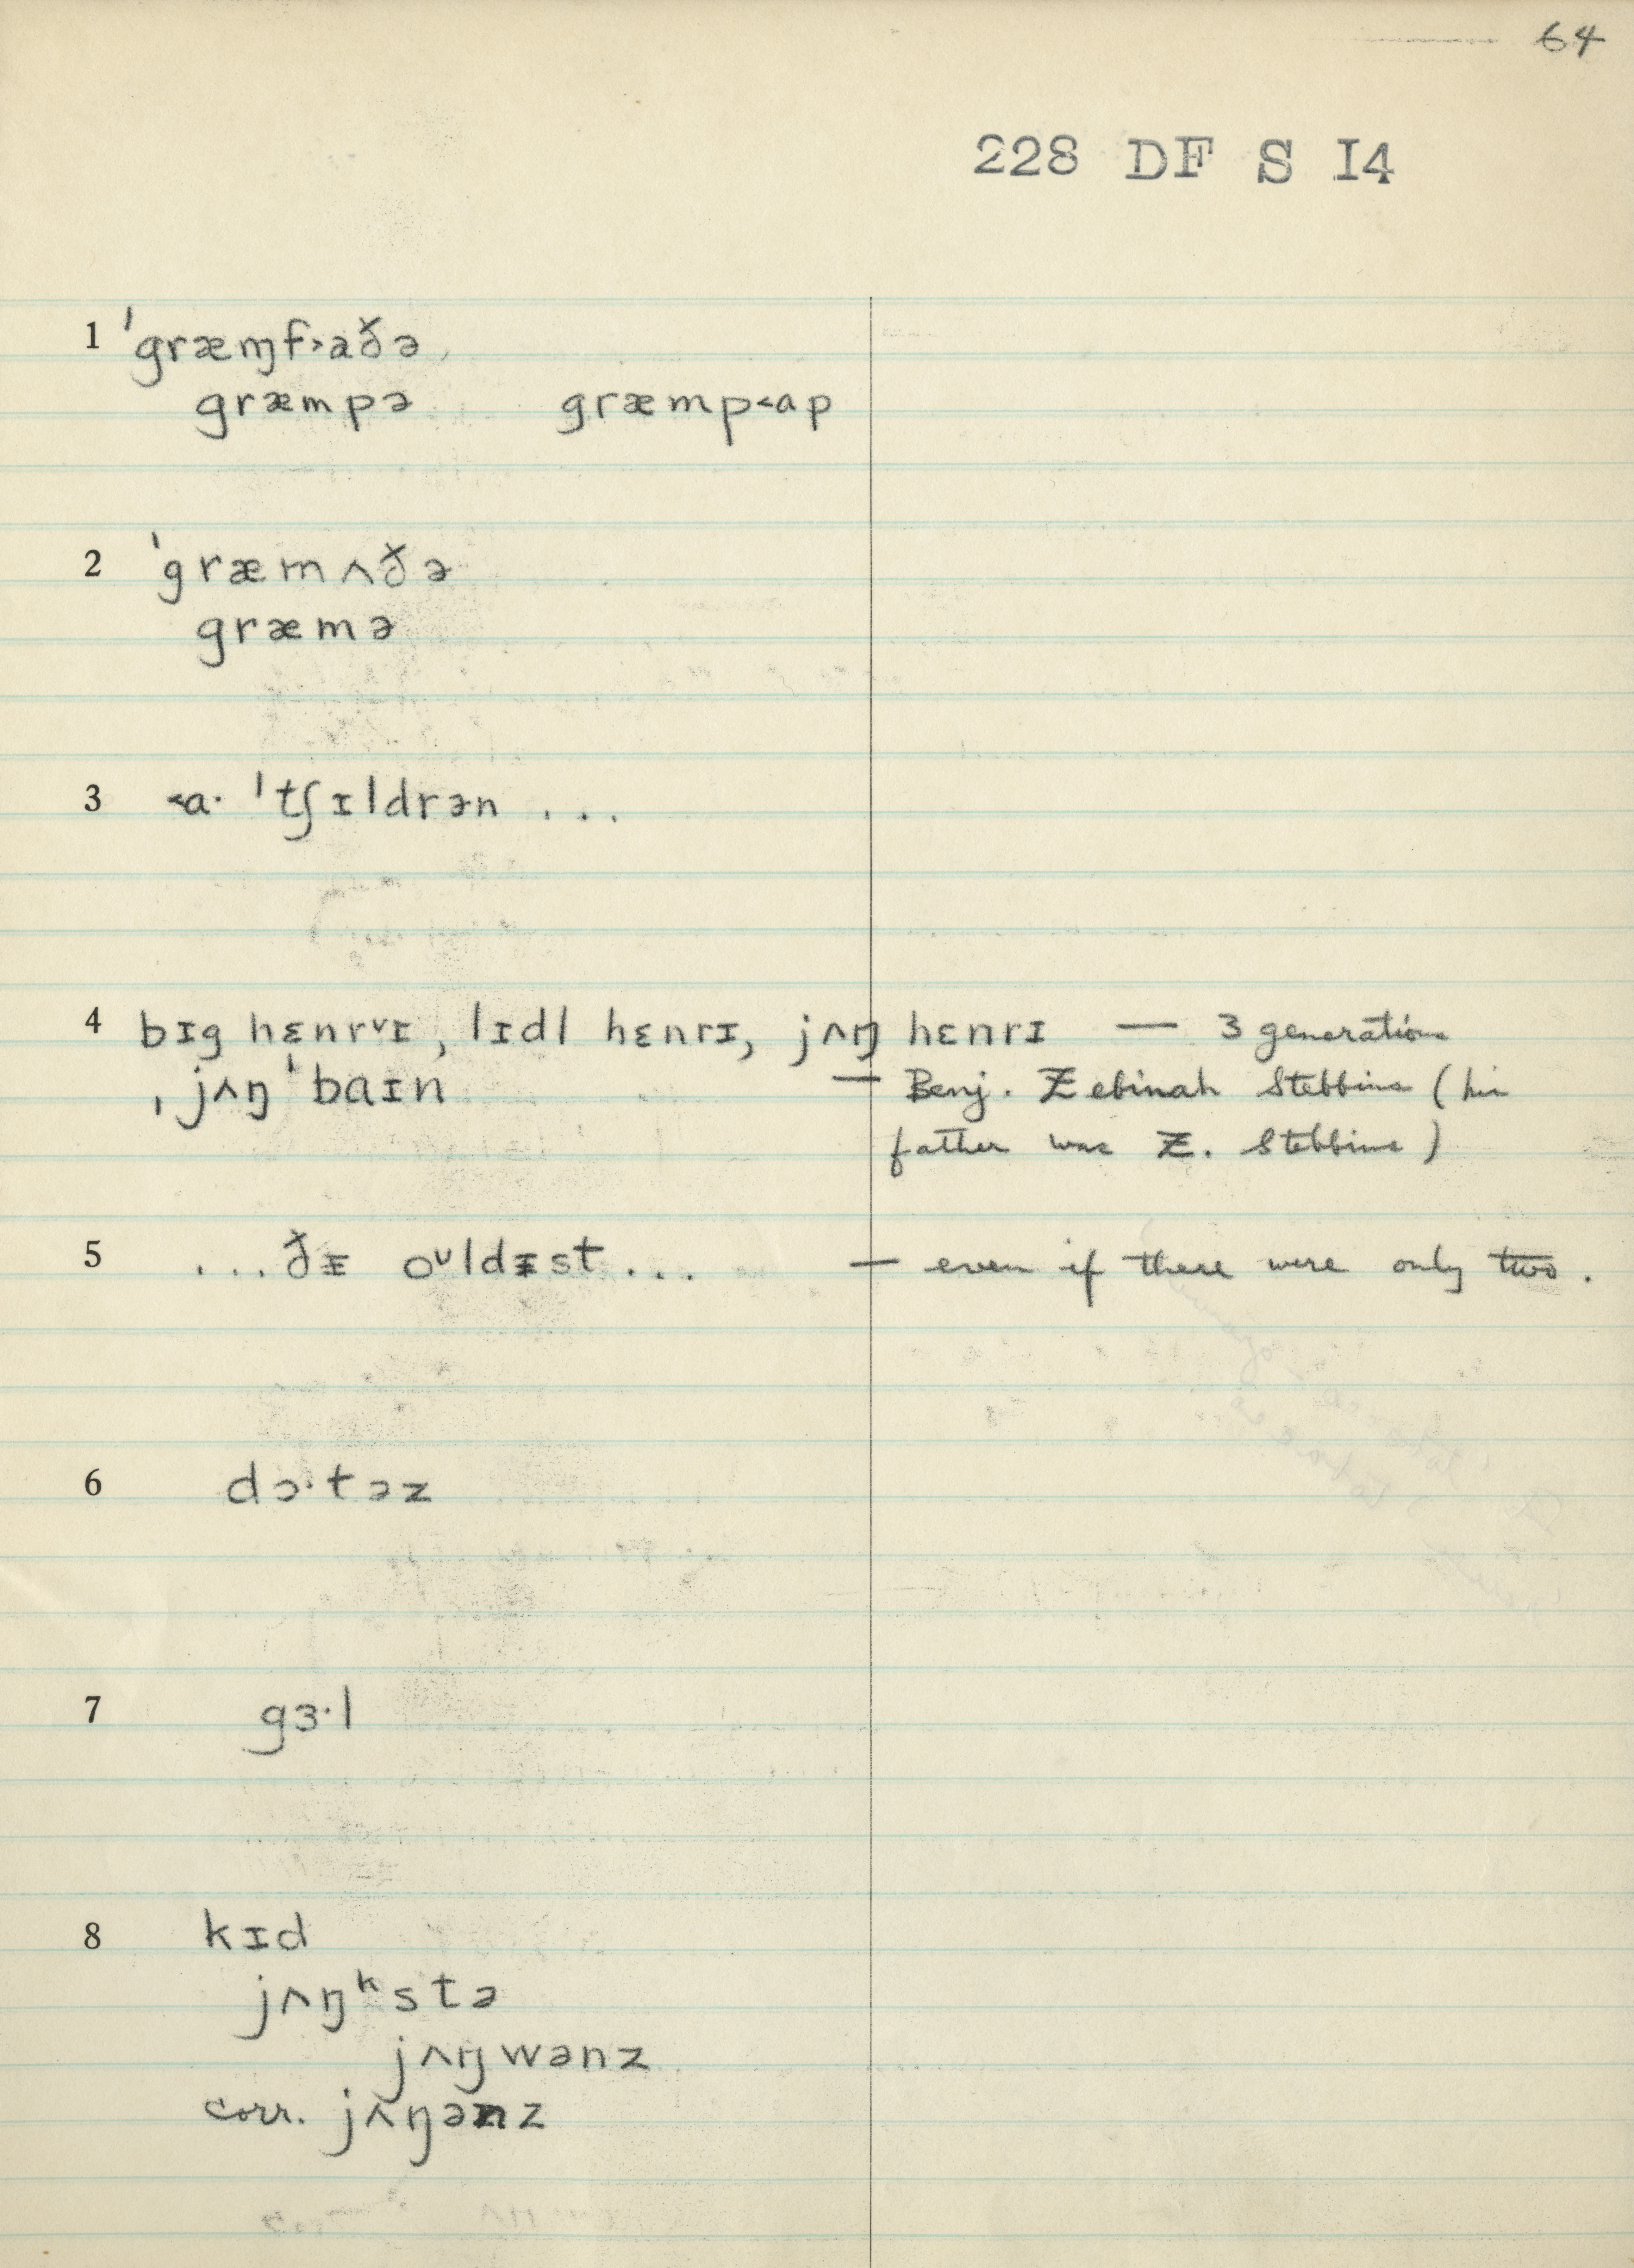 64
228 DF S I4
1 ˈgræɱf˃aðə
græmpə græmp˂ap
2 ˈgræmʌðə
græmə
3 ˂aˑ ˈtʃɪldrən ...
4 bɪg hɛnrᵛɪ, lɪdl hɛnrɪ, jʌŋ hɛnrɪ — 3 generations
ˌjʌŋ ˈbaɪn — Benj. Zebinah Stebbins (his
father was Z. Stebbins)
5 ...ðᵻ oᶸldᵻst... — even if there were only two.
6 dɔˑtəz
7 gɜˑl
8 kɪd
jʌŋᵏstə
jʌŋwənz
corr. jʌŋənz